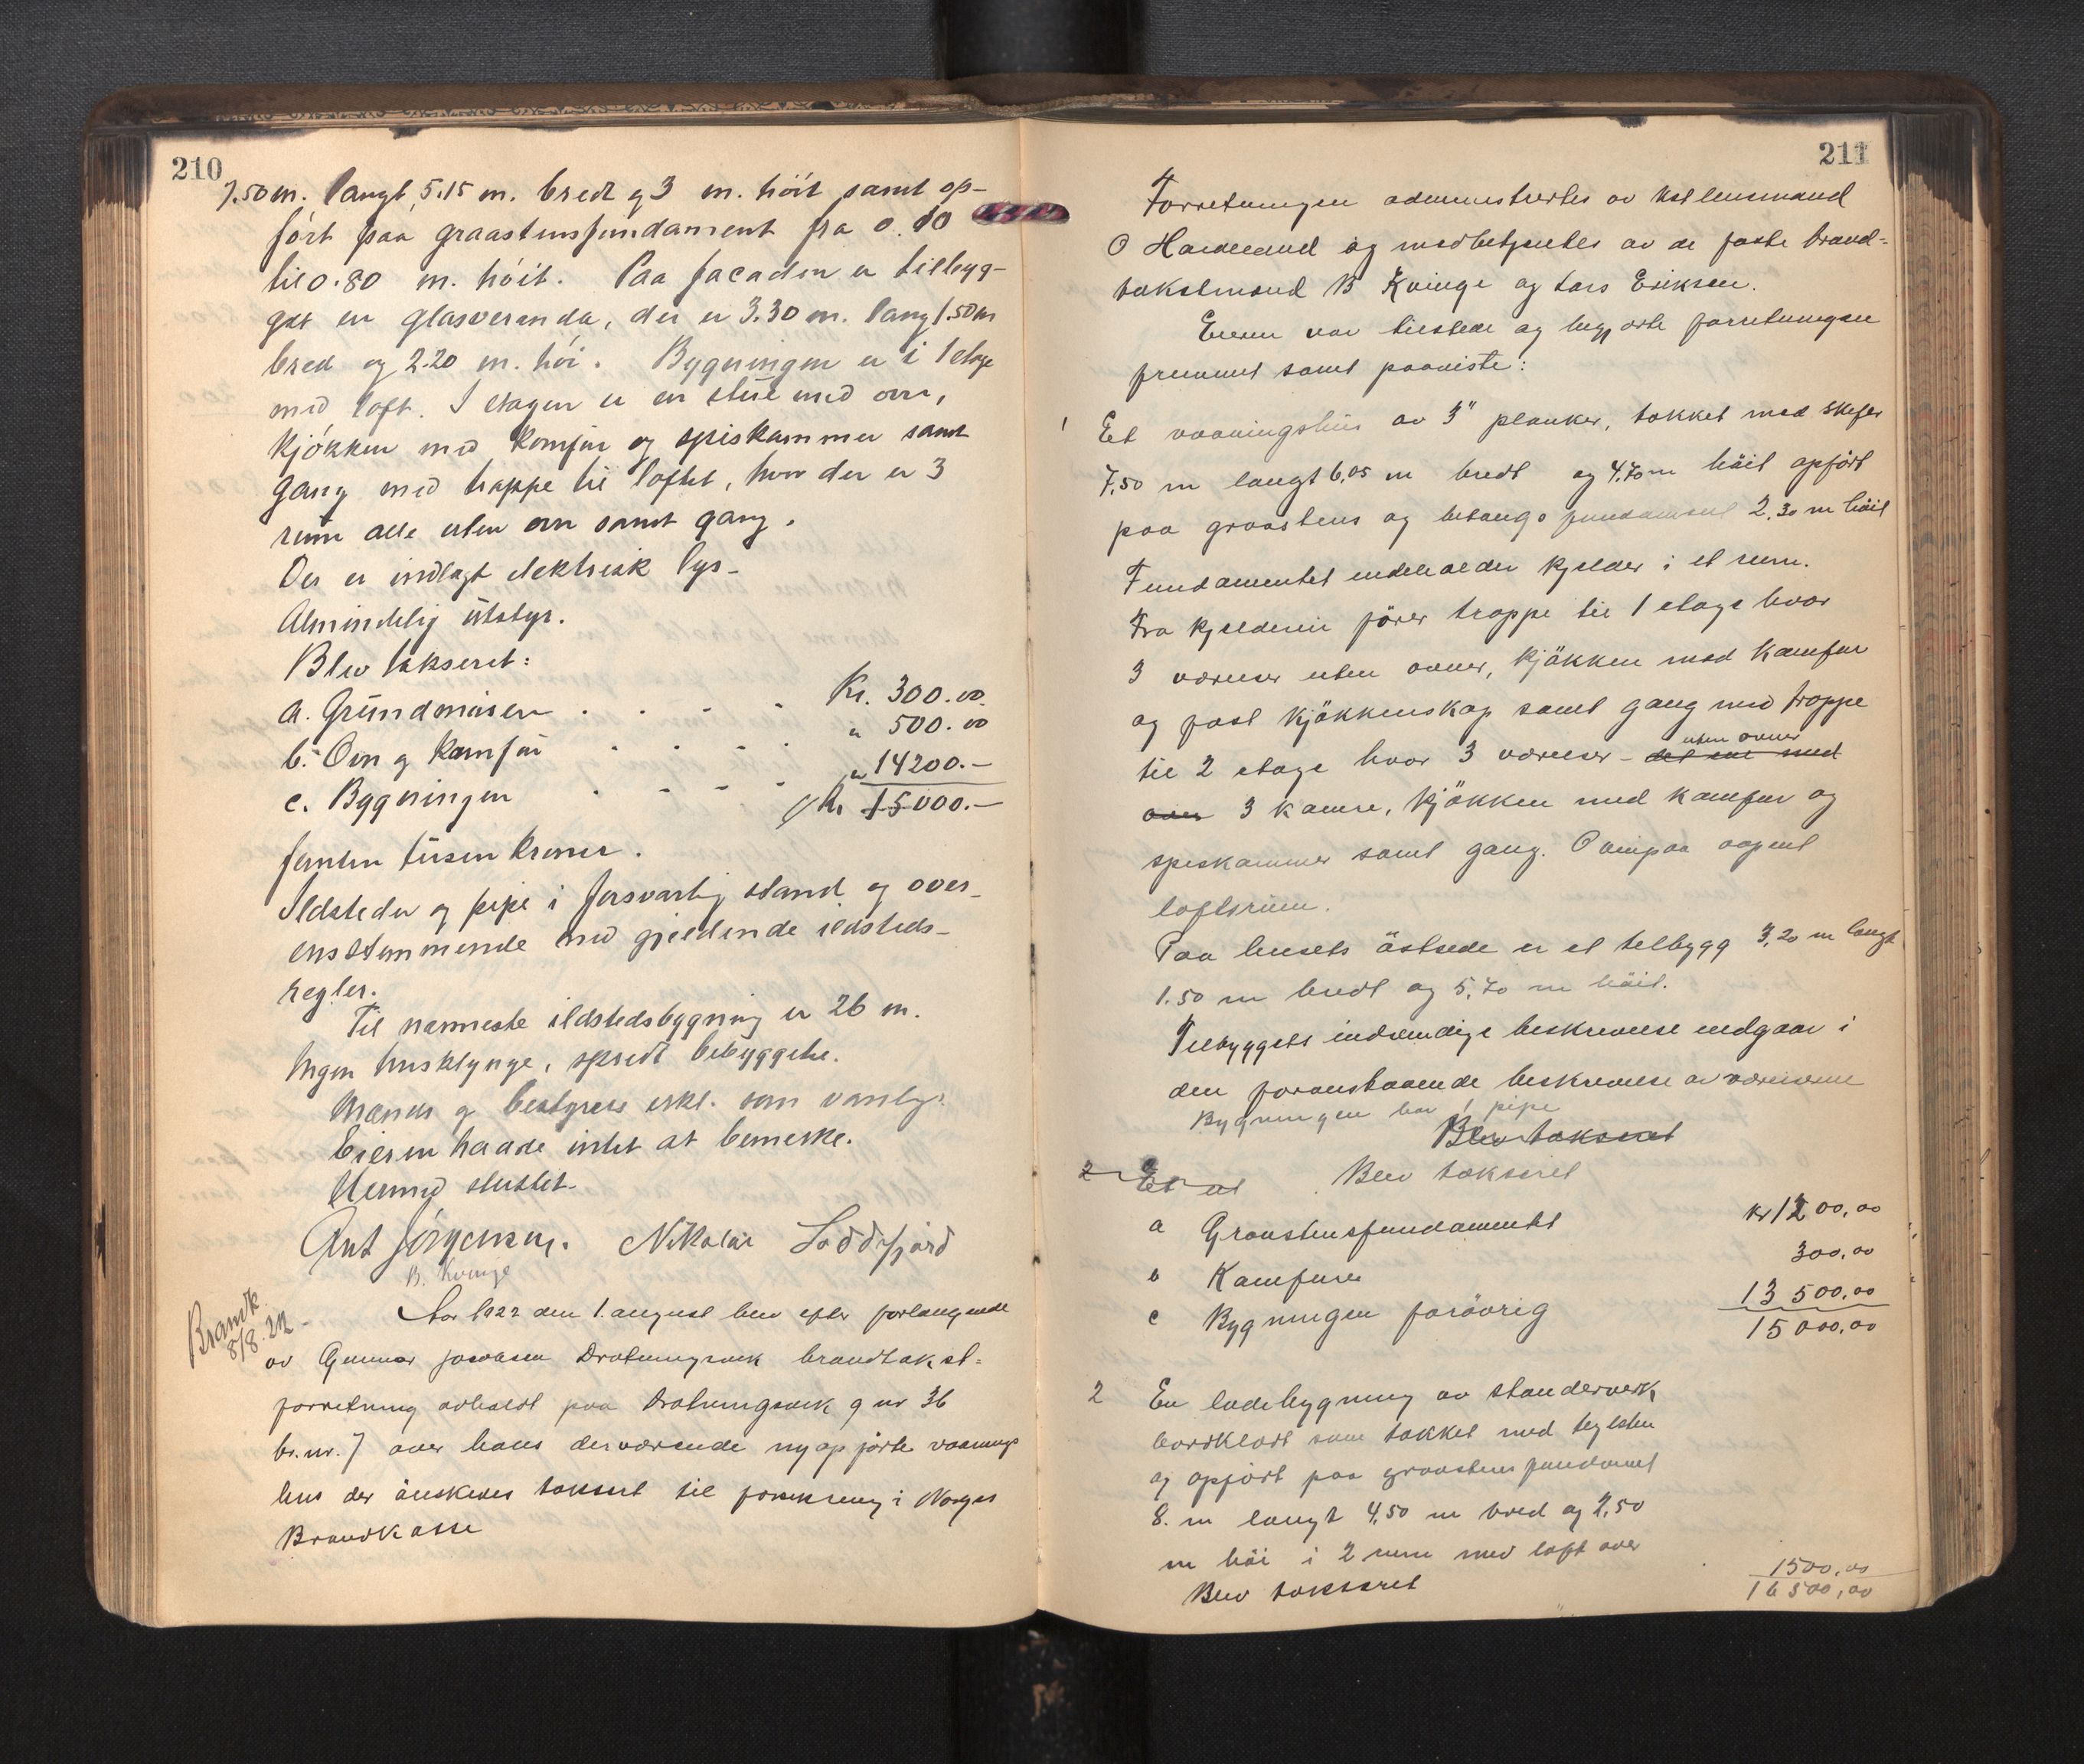 210
7.50 m. langt, 5.15 m. bredt og 3 m. höit samt op-
ført paa graastensfundament fra 0.10
til 0.80 m. höit. Paa facaden er tilbyg-
get en glasveranda, der er 3.30 m. lang 1.50 m
bred og 2.20 m. höi. Bygningen er i 1 etage
med loft. I etagen er en stue med ovn,
kjøkken med komfur og spiskammer samt
gang med trappe til loftet, hvor der er 3
rum alle uten ovn samt gang.
Der er indlagt elektrisk lys-
Almindelig utstyr.
Blev takseret:
a. Grundmuren . . . . Kr. 300.00.
b. Ovn og komfur . . . . " 500.00
c. Bygningen . . . . " 14200.-
Kr 15000.-
femten tusen kroner.
Ildsteder og pipe i forsvarlig stand og over-
ensstemmende med gjeldende ildsteds-
regler.
Til nærmeste ildstedsbygning er 26 m.
Ingen husklynge, spredt bebyggelse.
Mænds og bestyrers erkl. som vanlig.
Eieren hadde intet at bemerke.
Hermed sluttet.
Ant Jørgensen. Nikolai Loddefjord
B. Kvinge
Brandk
8/8.22.
Aar 1922 den 1. august blev efter forlangende
av Gunnar Jacobsen Drotningsvik brandtakst-
forretning avholdt paa Drotningsvik g nr 36
br. nr. 7 over hans derværende nyopførte vaanings
hus der önskedes taksert til forsikring i Norges
Brandkasse
211
Forretningen administrertes av kst lensmand
O Hardeland og medbetjentes av de faste brand-
takstmænd B Kvinge og Lars Eriksen.
Eieren var tilstede og begjærte forretningen
fremmet samt paaviste:
1 Et vaaningshus av 3" planker, tækket med skifer
7,50 m langt 6,05 m bredt og 4,70 m höit opført
paa graastens og betongs fundament 2,30 m höit
Fundamentet indeholder kjelder i et rum.
Fra kjelderen förer trappe til 1 etage hvor
3 værelser uten ovner, kjökken med komfur
og fast kjökkenskap samt gang med trappe
til 2 etage hvor 3 værelser - det ene med uten ovner
ovn 3 kamre, kjökken med komfur og
speskammer samt gang. Ovenpaa aapent
loftsrum.
Paa husets östside er et tilbygg 3,20 m langt
1.50 m bredt og 5,70 m höit.
Tilbyggets indvendige beskrivelse indgaar i
den foranstaaende beskrivelse av værelserne
Bygningen har 1 pipe
Blev takseret
2 Et ut Blev takseret
a Graastensfundamentet kr 1200,00
b Komfurer 300,00
c Bygningen forövrig 13 500,00
15 000,00
2 En ladebygning av stenderverk
bordklædt som tækket med teglsten
og opført paa graastens fundament
8. m langt 4,50 m bred og 2,50
m höi i 2 rum med loft over
Blev takseret 1500,00
16 500,00